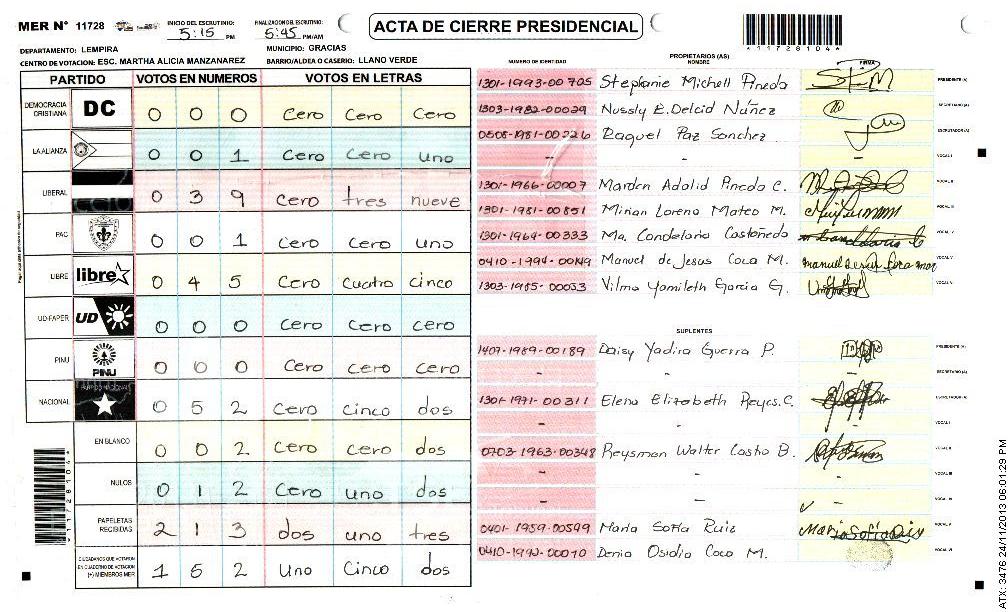 MER N° 11728
INICIO DEL ESCRUTINIO: 5:15 PM
FINALIZACION DEL ESCRUTINIO: 5:45 PM/AM
ACTA DE CIERRE PRESIDENCIAL
1172810 4
DEPARTAMENTO: LEMPIRA
MUNICIPIO: GRACIAS
CENTRO DE VOTACION: ESC. MARTHA ALICIA MANZANAREZ
BARRIO/ALDEA O CASERIO: LLANO VERDE
PARTIDO VOTOS EN NUMEROS VOTOS EN LETRAS
DEMOCRACIA CRISTIANA DC 0 0 0 Cero Cero Cero
LA ALIANZA 0 0 1 Cero Cero uno
LIBERAL 0 3 9 Cero tres nueve
PAC 0 0 1 Cero Cero uno
LIBRE libre 0 4 5 Cero Cuatro cinco
UD-FAPER UD 0 0 0 Cero Cero cero
PINU PINU 0 0 0 Cero Cero Cero
NACIONAL 0 5 2 Cero cinco dos
EN BLANCO 0 0 2 Cero cero dos
NULOS 0 1 2 Cero uno dos
PAPELETAS RECIBIDAS 2 1 3 dos uno tres
CIUDADANOS QUE VOTARON EN CUADERNO DE VOTACION (+) MIEMBROS MER 1 5 2 Uno Cinco dos
PROPIETARIOS (AS)
NUMERO DE IDENTIDAD NOMBRE FIRMA
1301-1993-00705 Stephanie Michell Pineda PRESIDENTE (A)
1303-1982-00029 Nussly E. Delcid Núñez SECRETARIO (A)
0506-1981-00226 Raquel Paz Sanchez ESCRUTADOR (A)
- - - VOCAL I
1301-1966-00007 Marden Adolid Pineda C. VOCAL II
1301-1981-00851 Mirian Lorena Mateo M. VOCAL III
1301-1964-00333 Ma. Candelaria Castañeda
0410-1994-00149 Manuel de Jesus Coca M.
1303-1985-00033 Vilma Yamileth Garcia G.
SUPLENTES
1409-1989-00189 Daisy Yadira Guerra P. PRESIDENTE (A)
- - - SECRETARIO (A)
1301-1971-00311 Elena Elizabeth Reyes. C. ESCRUTADOR (A)
- - - VOCAL I
0703-1963-00348 Reysman Walter Casho B. VOCAL II
- - - VOCAL III
- - -
0401-1959-00599 Maria Sofia Ruiz
0410-1992-00070 Denia Osidia Coco M.
ATX: 3476 24/11/2013 06:01:29 PM